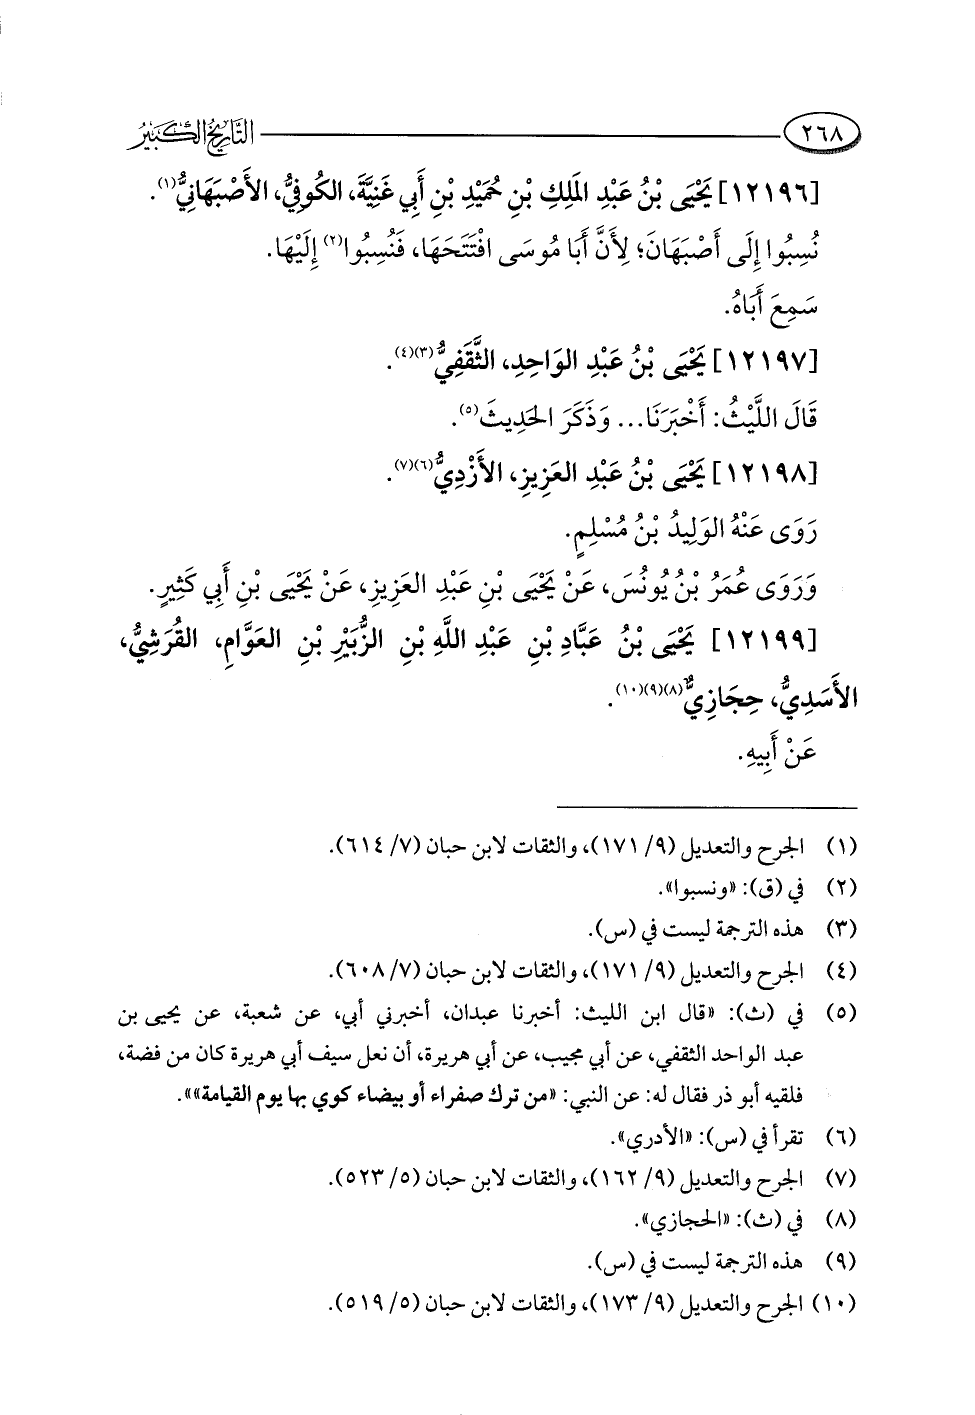 ٢٦٨ التاريخ الكبير
[١٢١٩٦] يَحْيَى بْنُ عَبْدِ المَلِكِ بْنِ حُمَيْدِ بْنِ أَبِي غَنِيَّةَ، الكُوفِيُّ، الأَصْبَهَانِيُّ(١).
نُسِبُوا إِلَى أَصْبَهَانَ؛ لِأَنَّ أَبَا مُوسَى افْتَتَحَهَا، فَنُسِبُوا(٢) إِلَيْهَا.
سَمِعَ أَبَاهُ.
[١٢١٩٧] يَحْيَى بْنُ عَبْدِ الوَاحِدِ، الثَّقَفِيُّ(٣)(٤).
قَالَ اللَّيْثُ: أَخْبَرَنَا... وَذَكَرَ الحَدِيثَ(٥).
[١٢١٩٨] يَحْيَى بْنُ عَبْدِ العَزِيزِ، الأَزْدِيُّ(٦)(٧).
رَوَى عَنْهُ الوَلِيدُ بْنُ مُسْلِمٍ.
وَرَوَى عُمَرُ بْنُ يُونُسَ، عَنْ يَحْيَى بْنِ عَبْدِ العَزِيزِ، عَنْ يَحْيَى بْنِ أَبِي كَثِيرٍ.
[١٢١٩٩] يَحْيَى بْنُ عَبَّادِ بْنِ عَبْدِ اللَّهِ بْنِ الزُّبَيْرِ بْنِ العَوَّامِ، القُرَشِيُّ،
الأَسَدِيُّ، حِجَازِيٌّ(٨)(٩)(١٠).
عَنْ أَبِيهِ.
(١) الجرح والتعديل (٩/ ١٧١)، والثقات لابن حبان (٧/ ٦١٤).
(٢) في (ق): «ونسبوا».
(٣) هذه الترجمة ليست في (س).
(٤) الجرح والتعديل (٩/ ١٧١)، والثقات لابن حبان (٧/ ٦٠٨).
(٥) في (ث): «قال ابن الليث: أخبرنا عبدان، أخبرني أبي، عن شعبة، عن يحيى بن
عبد الواحد الثقفي، عن أبي مجيب، عن أبي هريرة، أن نعل سيف أبي هريرة كان من فضة،
فلقيه أبو ذر فقال له: عن النبي: «من ترك صفراء أو بيضاء كوي بها يوم القيامة»».
(٦) تقرأ في (س): «الأدري».
(٧) الجرح والتعديل (٩/ ١٦٢)، والثقات لابن حبان (٥/ ٥٢٣).
(٨) في (ث): «الحجازي».
(٩) هذه الترجمة ليست في (س).
(١٠) الجرح والتعديل (٩/ ١٧٣)، والثقات لابن حبان (٥/ ٥١٩).